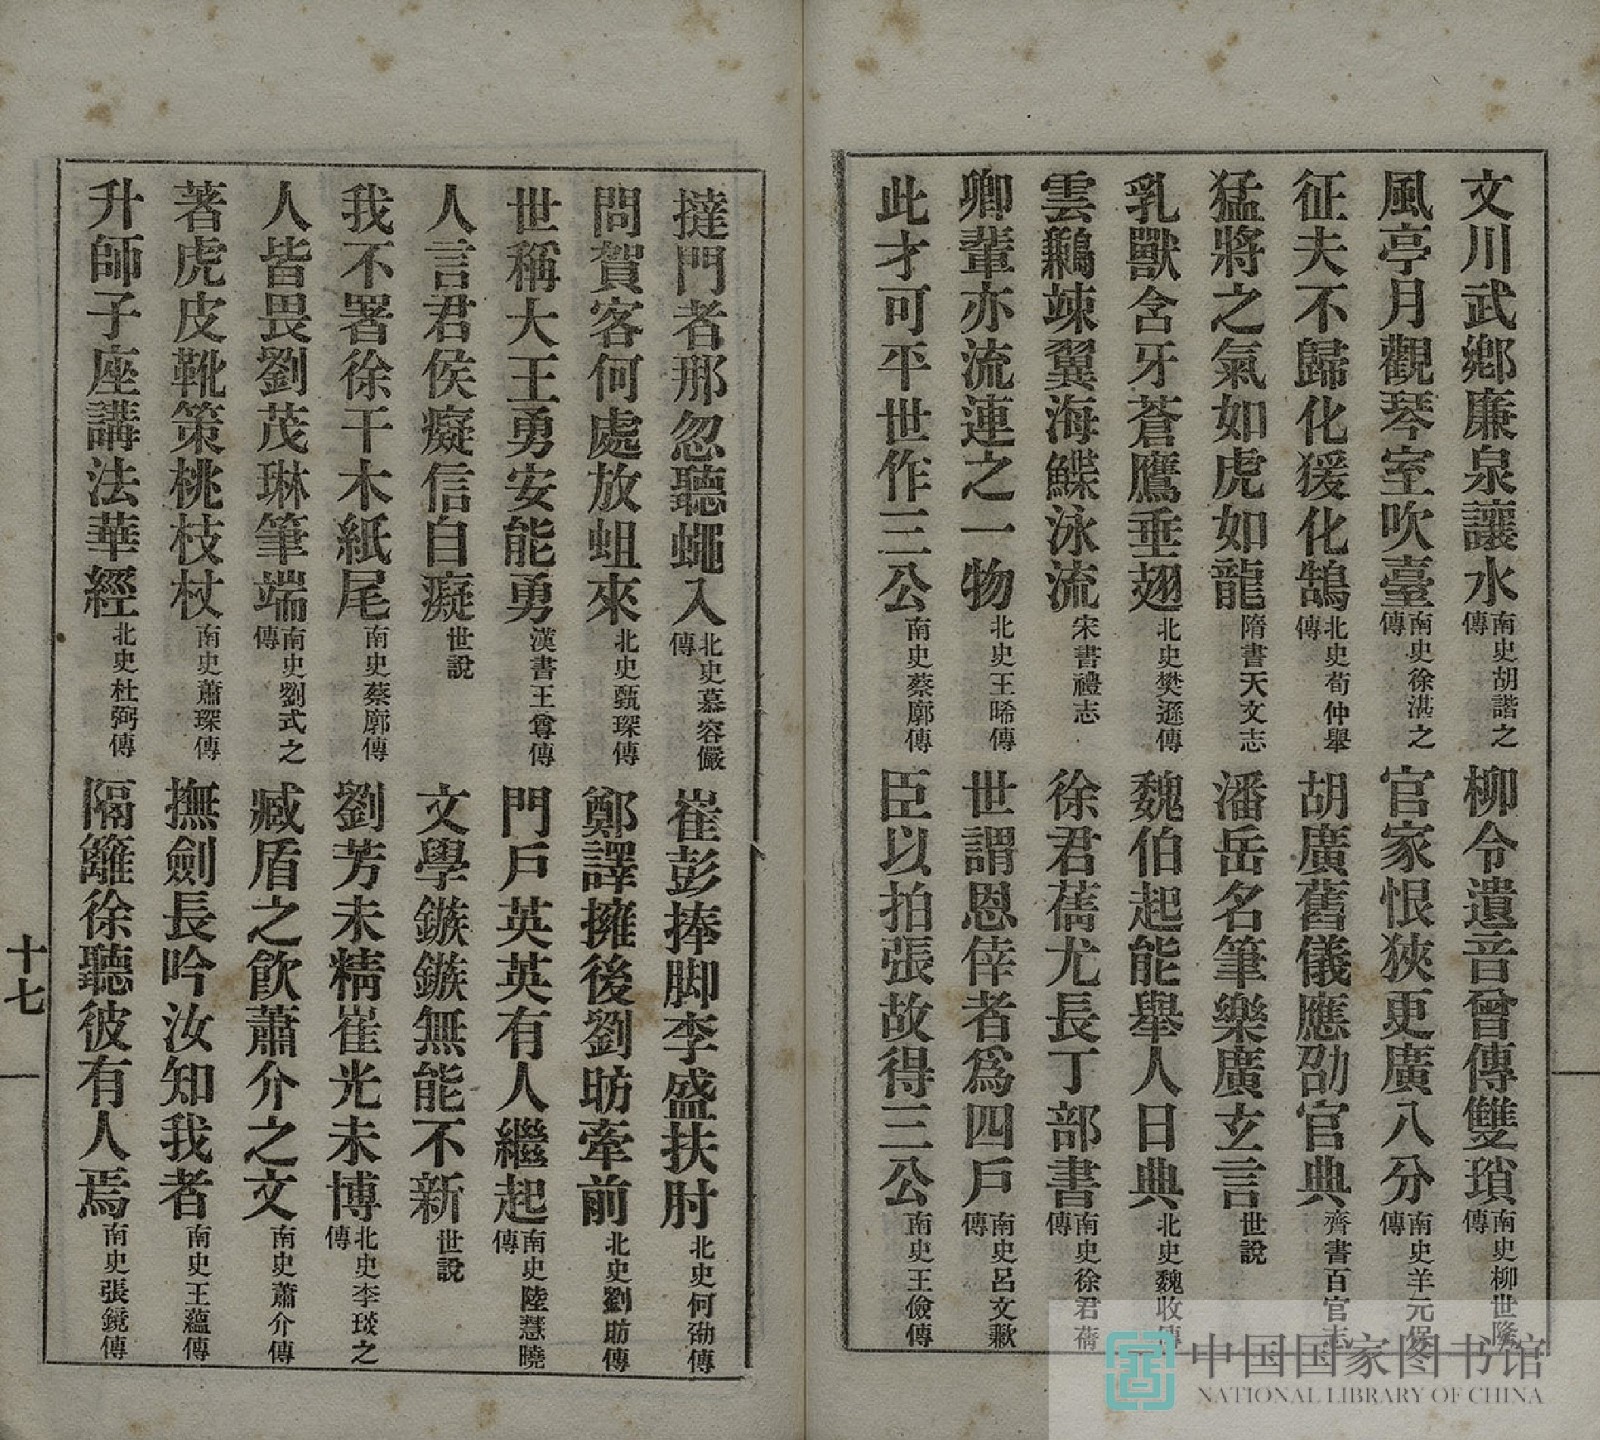 文川武鄉廉泉讓水南史胡諧之傳　柳令遺音曾傳雙瑣南史柳世隆傳
風亭月觀琴室吹臺南史徐湛之傳　官家恨狹更廣八分南史羊元保傳
征夫不歸化猨化鵠北史荀仲舉傳　胡廣舊儀應劭官典齊書百官志
猛將之氣如虎如龍隋書天文志　潘岳名筆樂廣玄言世說
乳獸含牙蒼鷹垂翅北史樊遜傳　魏伯起能舉人日典北史魏收傳
雲鶼竦翼海鰈泳流宋書禮志　徐君蒨尤長丁部書南史徐君蒨傳
卿輩亦流連之一物北史王晞傳　世謂恩倖者爲四戶南史呂文顯傳
此才可平世作三公南史蔡廓傳　臣以拍張故得三公南史王儉傳
撻門者那忽聽蠅入北史慕容儼傳　崔彭捧脚李盛扶肘北史何劭傳
問賀客何處放蛆來北史甄琛傳　鄭譯擁後劉昉牽前北史劉昉傳
世稱大王勇安能勇漢書王尊傳　門戶英英有人繼起南史陸慧曉傳
人言君侯癡信自癡世說　文學鏃鏃無能不新世說
我不署徐干木紙尾南史蔡廓傳　劉芳未精崔光未博北史李琰之傳
人皆畏劉茂琳筆端南史劉式之傳　臧盾之飲蕭介之文南史蕭介傳
著虎皮靴策桃枝杖南史蕭琛傳　撫劍長吟汝知我者南史王蘊傳
升師子座講法華經北史杜弼傳　隔籬徐聽彼有人焉南史張鏡傳
十七
中国国家图书馆
NATIONAL LIBRARY OF CHINA